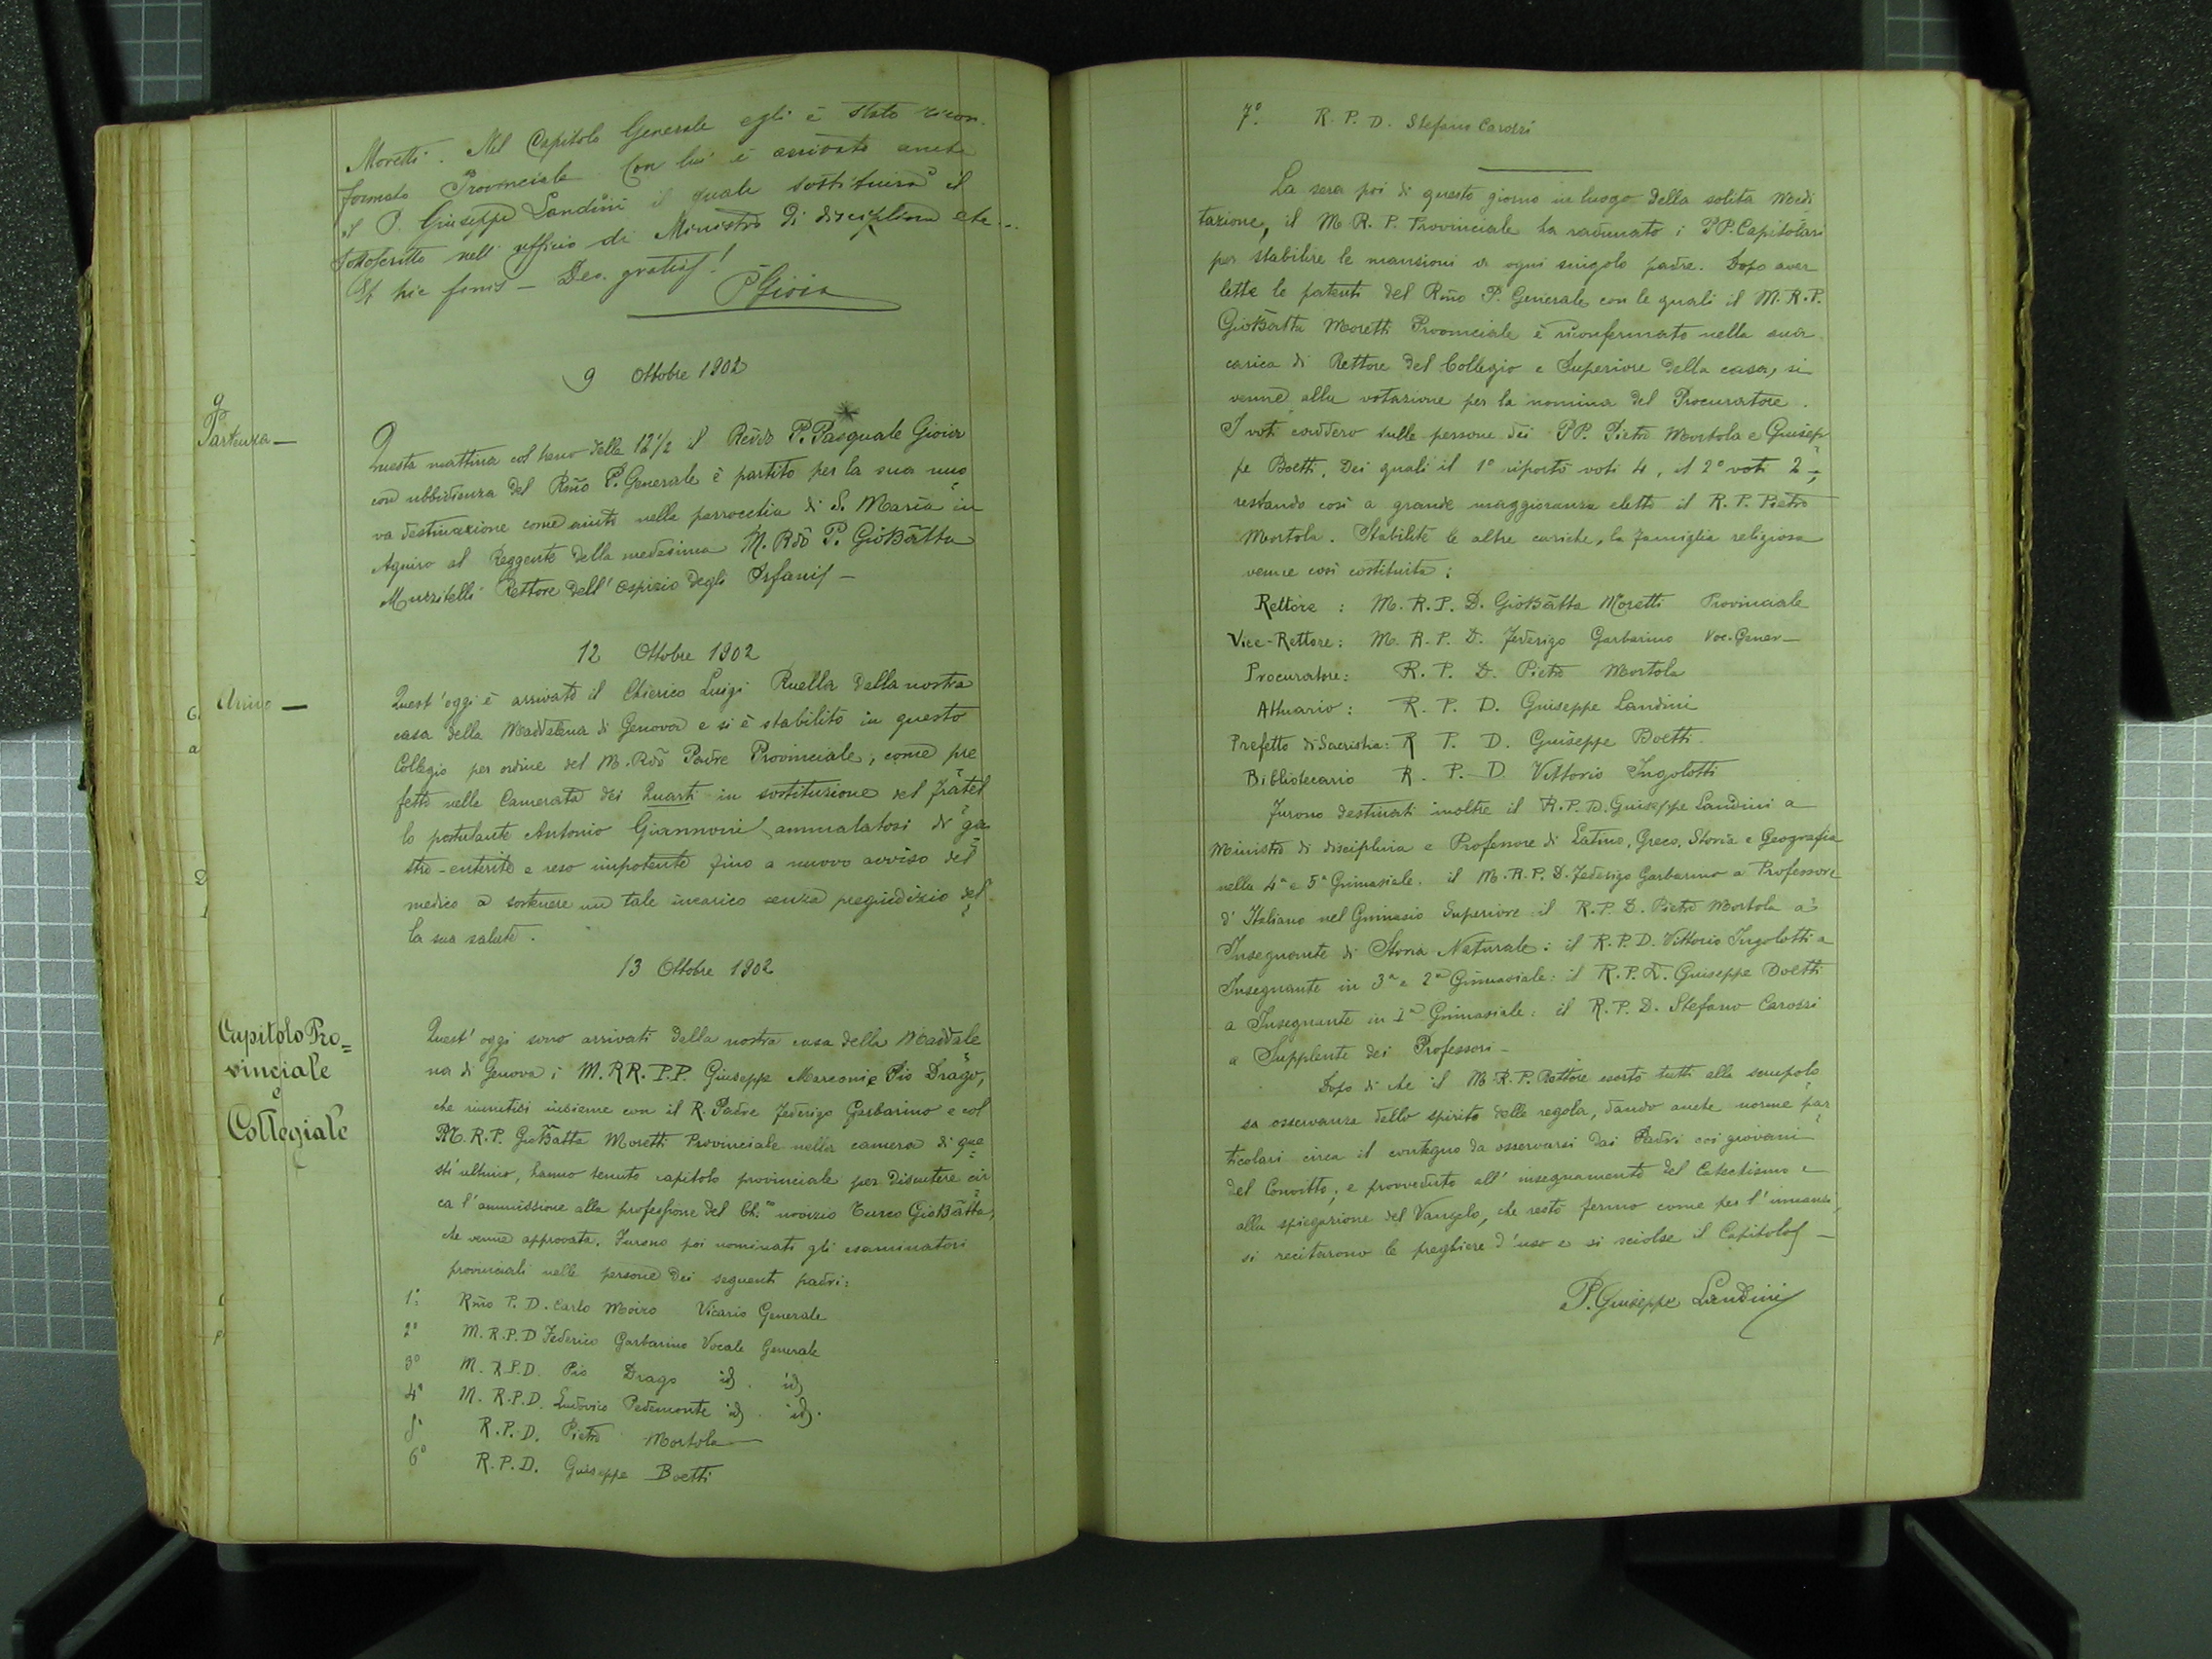 Moretti. Nel Capitolo Generale egli è stato ricon-
fermato Provinciale Con lui è arrivato anche
il P. Giuseppe Landini il quale sostituirà il
sottoscritto nell' ufficio di Ministro di disciplina etc...
Et hic finis — Deo gratias!
P Gioia
9 Ottobre 1902
9
Partenza —
Questa mattina col treno delle 12 1/2 il Revdo P. Pasquale Gioia
con ubbidienza del Rmo P. Generale è partito per la sua nuo
va destinazione come aiuto nella parrocchia di S. Maria in
Aquiro al Reggente della medesima M. Rdo P. GioBatta
Muzzitelli Rettore dell' Ospizio degli Orfani —
12 Ottobre 1902
Arrivo —
Quest' oggi è arrivato il Chierico Luigi Ruella dalla nostra
casa della Maddalena di Genova e si è stabilito in questo
Collegio per ordine del M. Rdo Padre Provinciale, come pre
fetto nella Camerata dei Quarti in sostituzione del fratel
lo postulante Antonio Giannoni ammalatosi di ga
stro-enterite e reso impotente fino a nuovo avviso del
medico a sostenere un tale incarico senza pregiudizio del
la sua salute.
13 Ottobre 1902
Capitolo Pro=
vinciale
e
Collegiale
Quest' oggi sono arrivati dalla nostra casa della Maddale
na di Genova i M. RR. P.P. Giuseppe Marconi e Pio Drago,
che riunitisi insieme con il R. Padre Federigo Garbarino e col
M. R. P. GioBatta Moretti Provinciale nella camera di que
sti ultimo, hanno tenuto capitolo provinciale per discutere cir
ca l' ammissione alla professione del Ch.co novizio Turco GioBatta,
che venne approvata. Furono poi nominati gli esaminatori
provinciali nelle persone dei seguenti padri:
1° Rmo P. D. Carlo Moizo Vicario Generale
2° M. R. P. D Federico Garbarino Vocale Generale
3° M. R. P. D. Pio Drago id. id
4° M. R. P. D. Ludovico Pedemonte id. id.
5° R. P. D. Pietro Mortola
6° R. P. D. Giuseppe Boetti
7° R. P. D. Stefano Carozzi
La sera poi di questo giorno in luogo della solita Medi
tazione, il M. R. P. Provinciale ha radunato i PP. Capitolari
per stabilire le mansioni di ogni singolo padre. Dopo aver
lette le patenti del Rmo P. Generale con le quali il M. R. P.
GioBatta Moretti Provinciale è riconfermato nella sua
carica di Rettore del Collegio e Superiore della casa, si
venne alla votazione per la nomina del Procuratore.
I voti caddero sulle persone dei PP. Pietro Mortola e Giusep
pe Boetti. Dei quali il 1° riportò voti 4, il 2° voti 2;
restando così a grande maggioranza eletto il R. P. Pietro
Mortola. Stabilite le altre cariche, la famiglia religiosa
venne così costituita:
Rettore : M. R. P. D. GioBatta Moretti Provinciale
Vice-Rettore: M. R. P. D. Federigo Garbarino Voc. Gener—
Procuratore: R. P. D. Pietro Mortola
Attuario : R. P. D. Giuseppe Landini
Prefetto di Sacristia: R P. D. Giuseppe Boetti.
Bibliotecario R. P. D. Vittorio Ingolotti
Furono destinati inoltre il R. P. D. Giuseppe Landini a
Ministro di disciplina e Professore di Latino, Greco, Storia e Geografia
nella 4ª e 5ª Ginnasiale. il M. R. P. D. Federigo Garbarino a Professore
d' Italiano nel Ginnasio Superiore: il R. P. D. Pietro Mortola a
Insegnante di Storia Naturale: il R. P. D. Vittorio Ingolotti a
Insegnante in 3ª e 2ª Ginnasiale: il R. P. D. Giuseppe Boetti
a Insegnante in 1ª Ginnasiale: il R. P. D. Stefano Carozzi
a Supplente dei Professori —
Dopo di che il M. R. P. Rettore esortò tutti alla scrupolo
sa osservanza dello spirito delle regola, dando anche norme par
ticolari circa il contegno da osservarsi dai Padri coi giovani
del Convitto; e provveduto all' insegnamento del Catechismo e
alla spiegazione del Vangelo, che restò fermo come per l' innanzi,
si recitarono le preghiere d' uso e si sciolse il Capitolo —
P. Giuseppe Landini